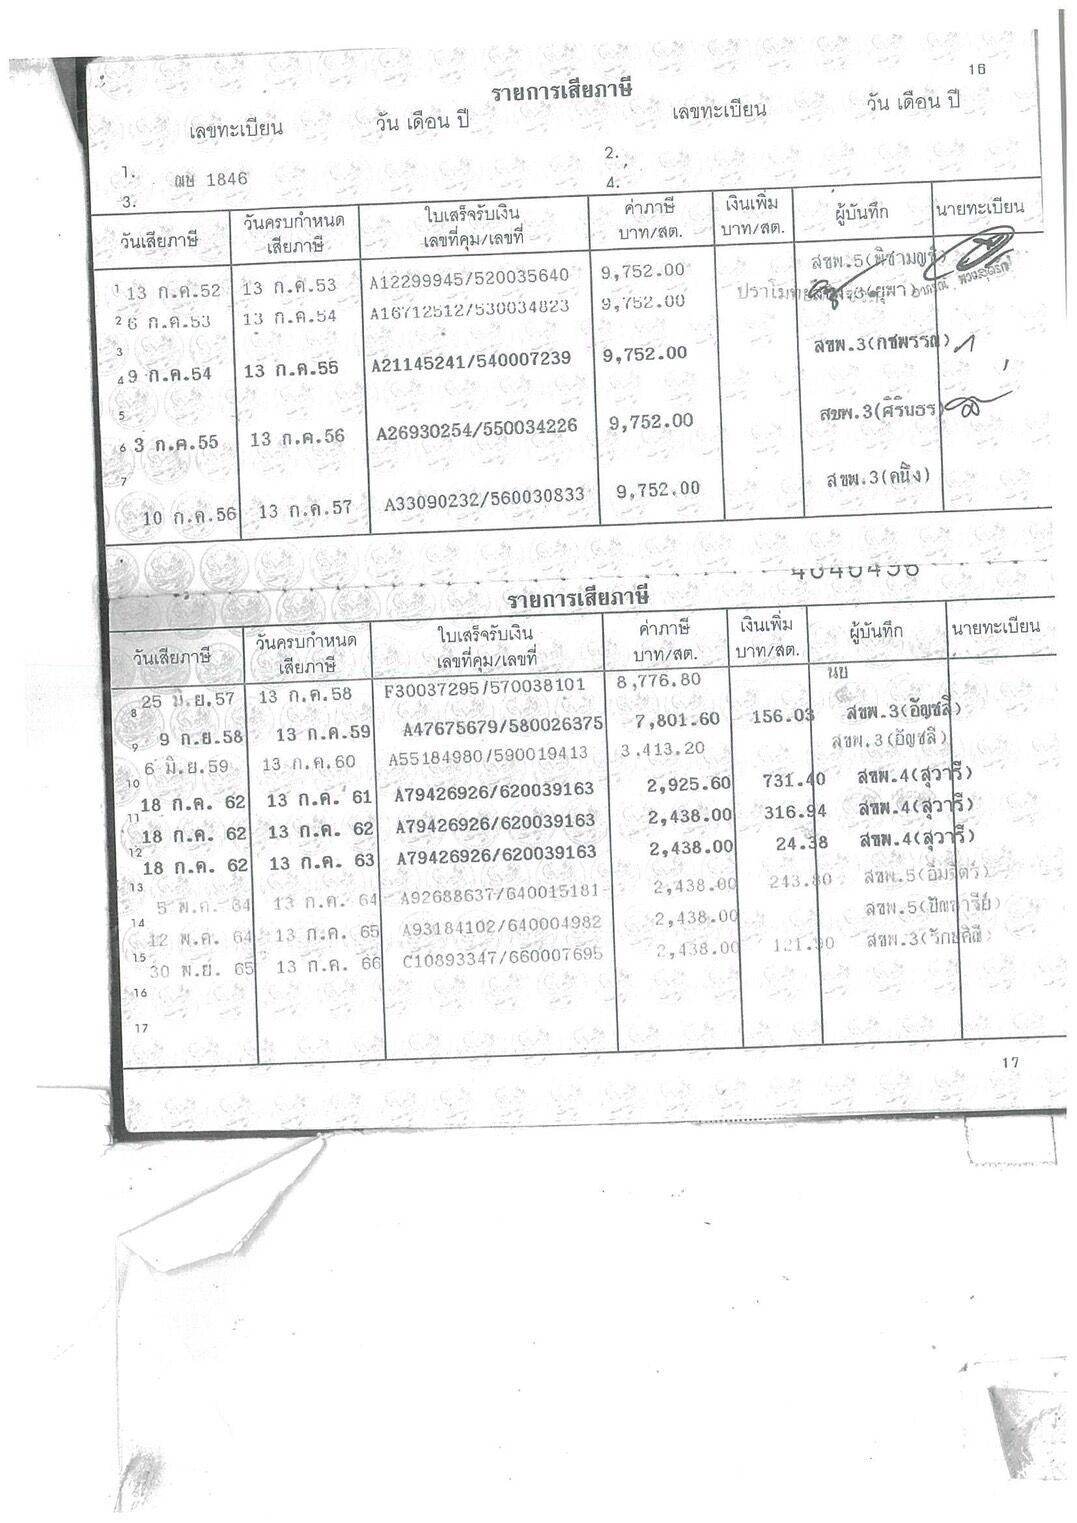 16
รายการเสียภาษี
เลขทะเบียน วัน เดือน ปี เลขทะเบียน วัน เดือน ปี
1. ฌษ 1846 2.
3. 4.
วันเสียภาษี วันครบกำหนดเสียภาษี ใบเสร็จรับเงิน เลขที่คุม/เลขที่ ค่าภาษี บาท/สต. เงินเพิ่ม บาท/สต. ผู้บันทึก นายทะเบียน
1 13 ก.ค.52 13 ก.ค.53 A12299945/520035640 9,752.00 สขพ.5(พิชามญชุ์)
2 6 ก.ค.53 13 ก.ค.54 A16712512/530034823 9,752.00
3
4 9 ก.ค.54 13 ก.ค.55 A21145241/540007239 9,752.00 สขพ.3(กชพรรณ)
5
6 3 ก.ค.55 13 ก.ค.56 A26930254/550034226 9,752.00 สขพ.3(ศิรินธร)
7
10 ก.ค.56 13 ก.ค.57 A33090232/560030833 9,752.00 สขพ.3(คนึง)
4040496
รายการเสียภาษี
วันเสียภาษี วันครบกำหนดเสียภาษี ใบเสร็จรับเงิน เลขที่คุม/เลขที่ ค่าภาษี บาท/สต. เงินเพิ่ม บาท/สต. ผู้บันทึก นายทะเบียน
25 มิ.ย.57 13 ก.ค.58 F30037295/570038101 8,776.80 นบ
8
9 9 ก.ย.58 13 ก.ค.59 A47675679/580026375 7,801.60 156.03 สขพ.3(อัญชลี)
6 มิ.ย.59 13 ก.ค.60 A55184980/590019413 3,413.20 สขพ.3(อัญชลี)
10
18 ก.ค. 62 13 ก.ค. 61 A79426926/620039163 2,925.60 731.40 สขพ.4(สุวารี)
11
18 ก.ค. 62 13 ก.ค. 62 A79426926/620039163 2,438.00 316.94 สขพ.4(สุวารี)
12
18 ก.ค. 62 13 ก.ค. 63 A79426926/620039163 2,438.00 24.38 สขพ.4(สุวารี)
13
5 พ.ค. 64 13 ก.ค. 64 A92688637/640015181 2,438.00 243.80 สขพ.5(อิ่มจิตร์)
14
12 พ.ค. 64 13 ก.ค. 65 A93184102/640004982 2,438.00 สขพ.5(ปัณฑารีย์)
15
30 พ.ย. 65 13 ก.ค. 66 C10893347/660007695 2,438.00 121.90 สขพ.3(รักษคิณี)
16
17
17